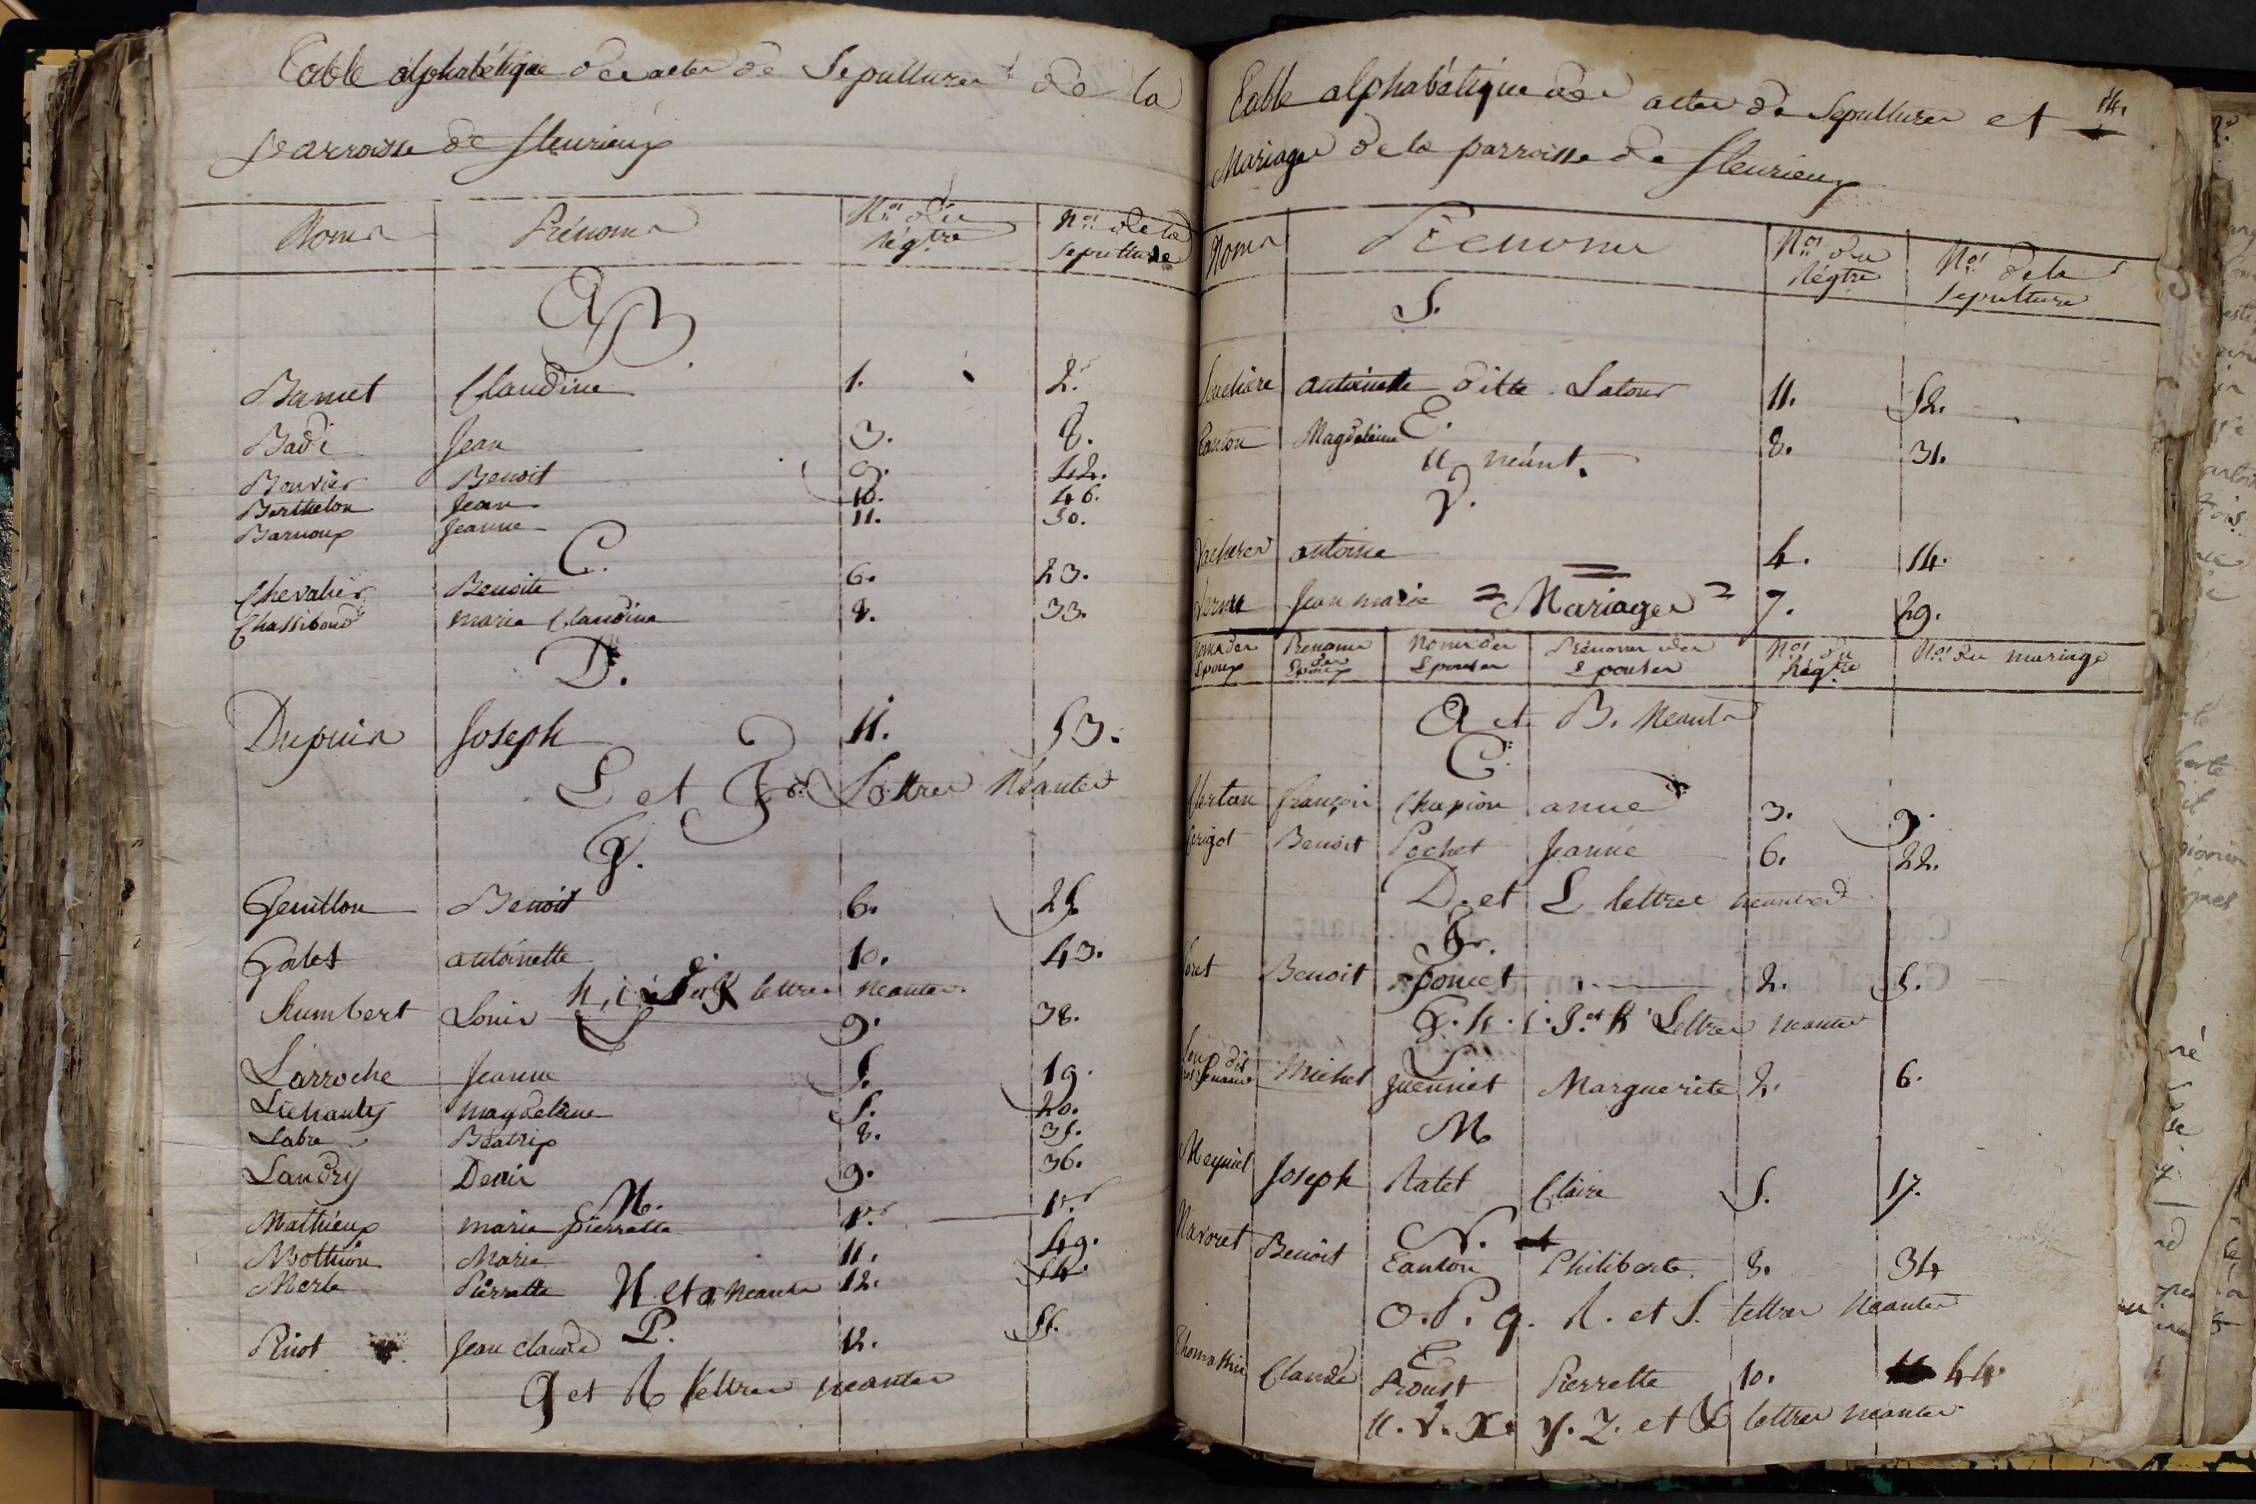 Table alphabétique des actes de Sepultures de la
Parroisse de fleurieux
Noms Prénoms Nos. du Régtre Nos. de la sepulture
A B
Banet Claudine 1. 2.
Badi Jean 3. 8.
Bouvier Benoit 9. 42.
Berthelon Jean 10. 46.
Barnoux Jeanne 11. 50.
C.
Chevalier Benoite 6. 23.
Chassiboud marie Claudine 8. 33.
D.
Dupuis Joseph 11. 53.
E et F Lettres Néantes
G.
Genillon Benoit 6. 25
Galet antoinette 10. 43.
h, i, et K lettres neantes.
humbert Louis 9. 38.
L
Larroche Jeanne 5. 19.
Liehauty magdelaine 5. 20.
Labre Béatrix 8. 35.
Landry Denis 9. 36.
M.
Mathieux marie pierrette 1er. 1er.
Mothion Marie 11. 49.
Merle Pierrette 12. 54.
N. et o, neants
P.
Pinot Jean claude 12. 55.
Q et R lettres neantes
Table alphabétique des actes de Sepultures et 14.
Mariages de la parroisse de fleurieux
Noms Prenoms Nos. du Régtre Nos. de la sepulture
S.
antoinette ditte Latour 11. 52.
T.
Tanton Magdelaine 8. 31.
U néant.
V.
Vacheres antoine 4. 14.
Verne Jean marie 7. 29.
= Mariages =
Noms des Epoux Prenoms des Epoux Noms des Epouses Prénoms des Epouses Nos. du Régtre Nos. du mariage
A et B. Neants
C.
Chertan françois Chapion anne 3. 9.
Cerigot Benoit Pochet Jeanne 6. 22.
D. et E lettres neantes
F.
foret Benoit poncet 2. 5.
G. h. i. J. et K Lettres neantes
L
Loup dit Michel guenniet Marguerite 2. 6.
M
Meyniel Joseph Ratet Claire 5. 17.
N.
Navoret Benoit Tanton Philiberte 8. 34
O. P. q. R. et S. lettres Neantes
T
Thomassin Claude Proust Pierrette 10. 44.
U. V. X. Y. Z. et & lettres neantes